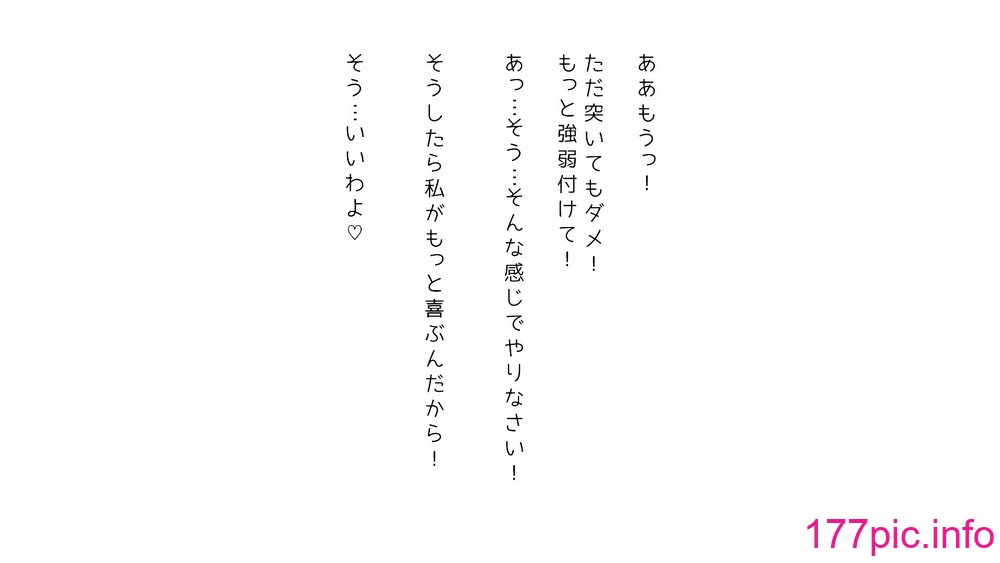 ああもうっ！
ただ突いてもダメ！
もっと強弱付けて！
あっ…そう…そんな感じでやりなさい！
そうしたら私がもっと喜ぶんだから！
そう…いいわよ♡
177pic.info